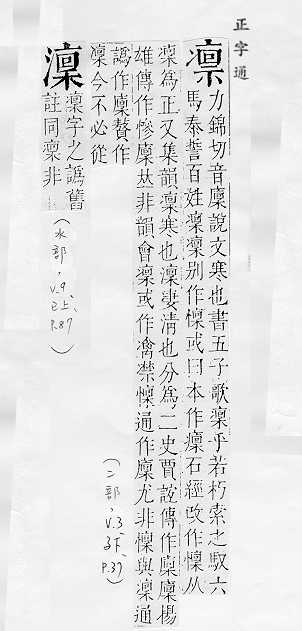 正字通
凜 力錦切音廩說文寒也書五子歌凜乎若朽索之馭六
馬泰誓百姓凜凜別作懍或曰本作癛石經改作懍从
凜為正又集韻凜寒也澟凄清也分為二史賈誼傳作廩廩楊
雄傳作慘廩𠀤非韻會凜或作禽禁懍通作廩尤非懍與凜通
譌作廩贅作
凜今不必從
(二部, v.3 子下, p.37)
澟 凜字之譌舊
註同凜非
(水部, v.9, 巳上, p.87)